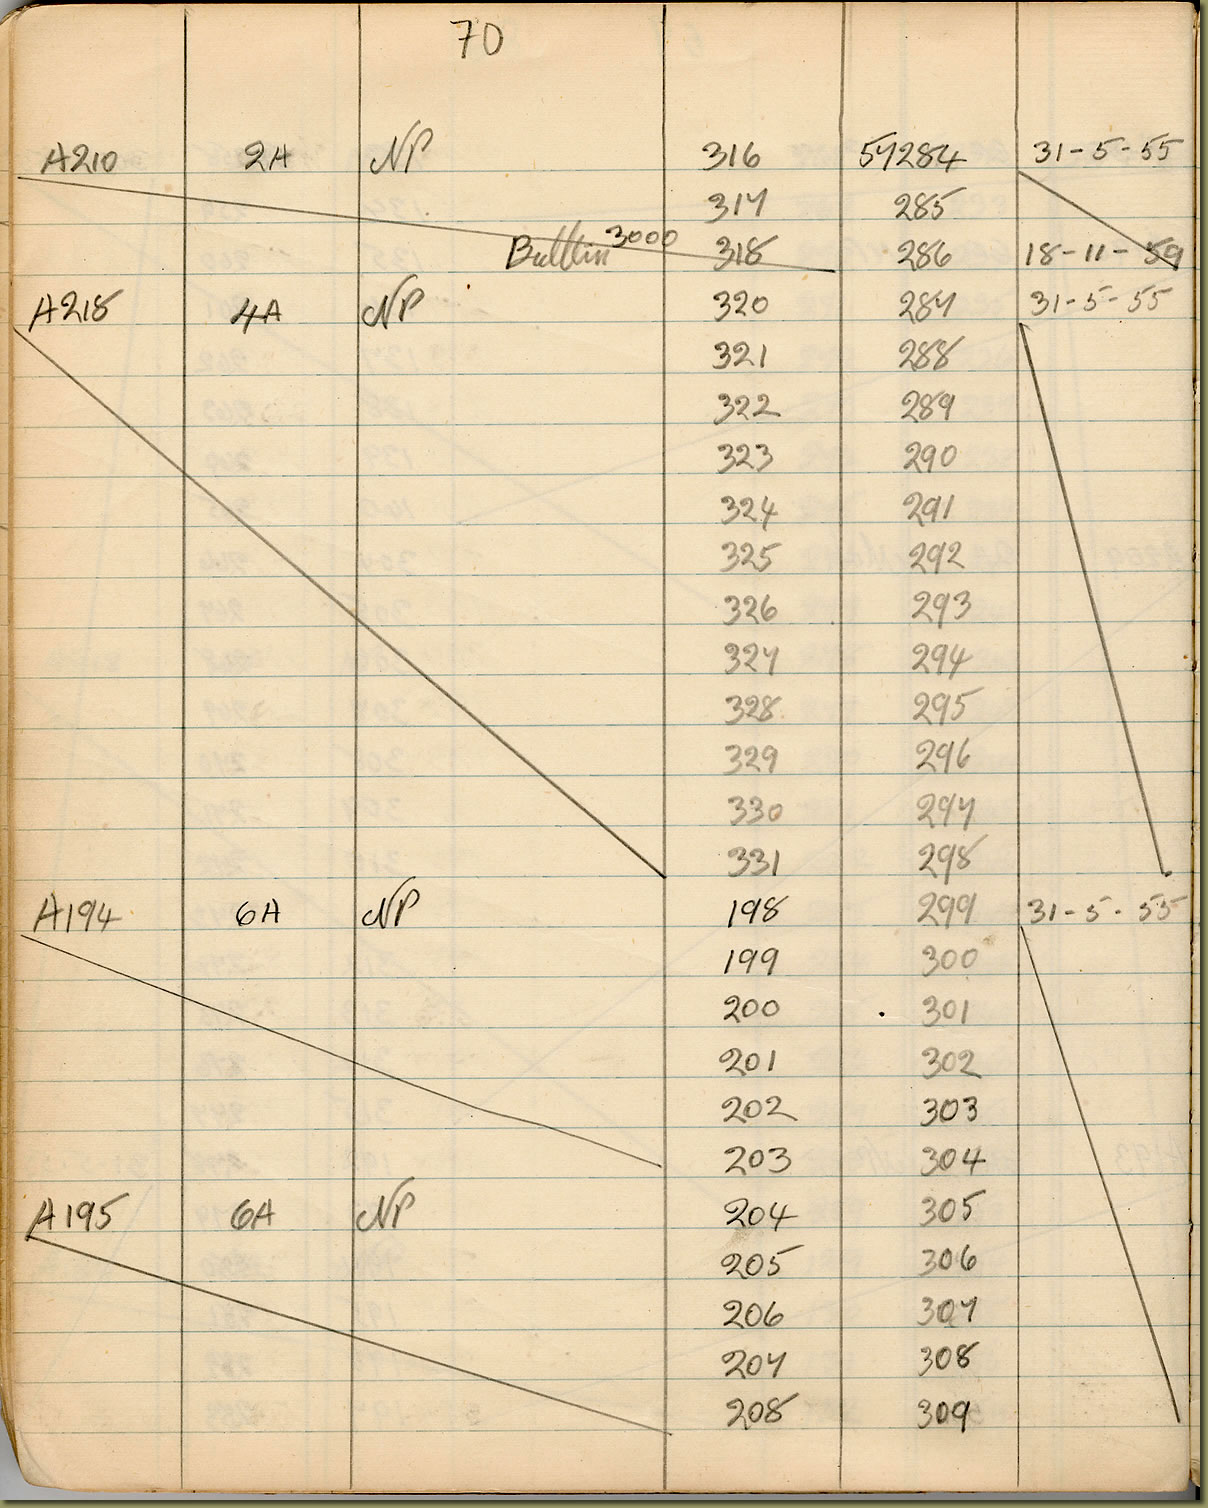 70
A210 2A NP 316 57284 31-5-55
317 285
3000 318 286 18-11-59
A218 4A NP 320 287 31-5-55
321 288
322 289
323 290
324 291
325 292
326 293
327 294
328 295
329 296
330 297
331 298
A194 6A NP 198 299 31-5-55
199 300
200 301
201 302
202 303
203 304
A195 6A NP 204 305
205 306
206 307
207 308
208 309